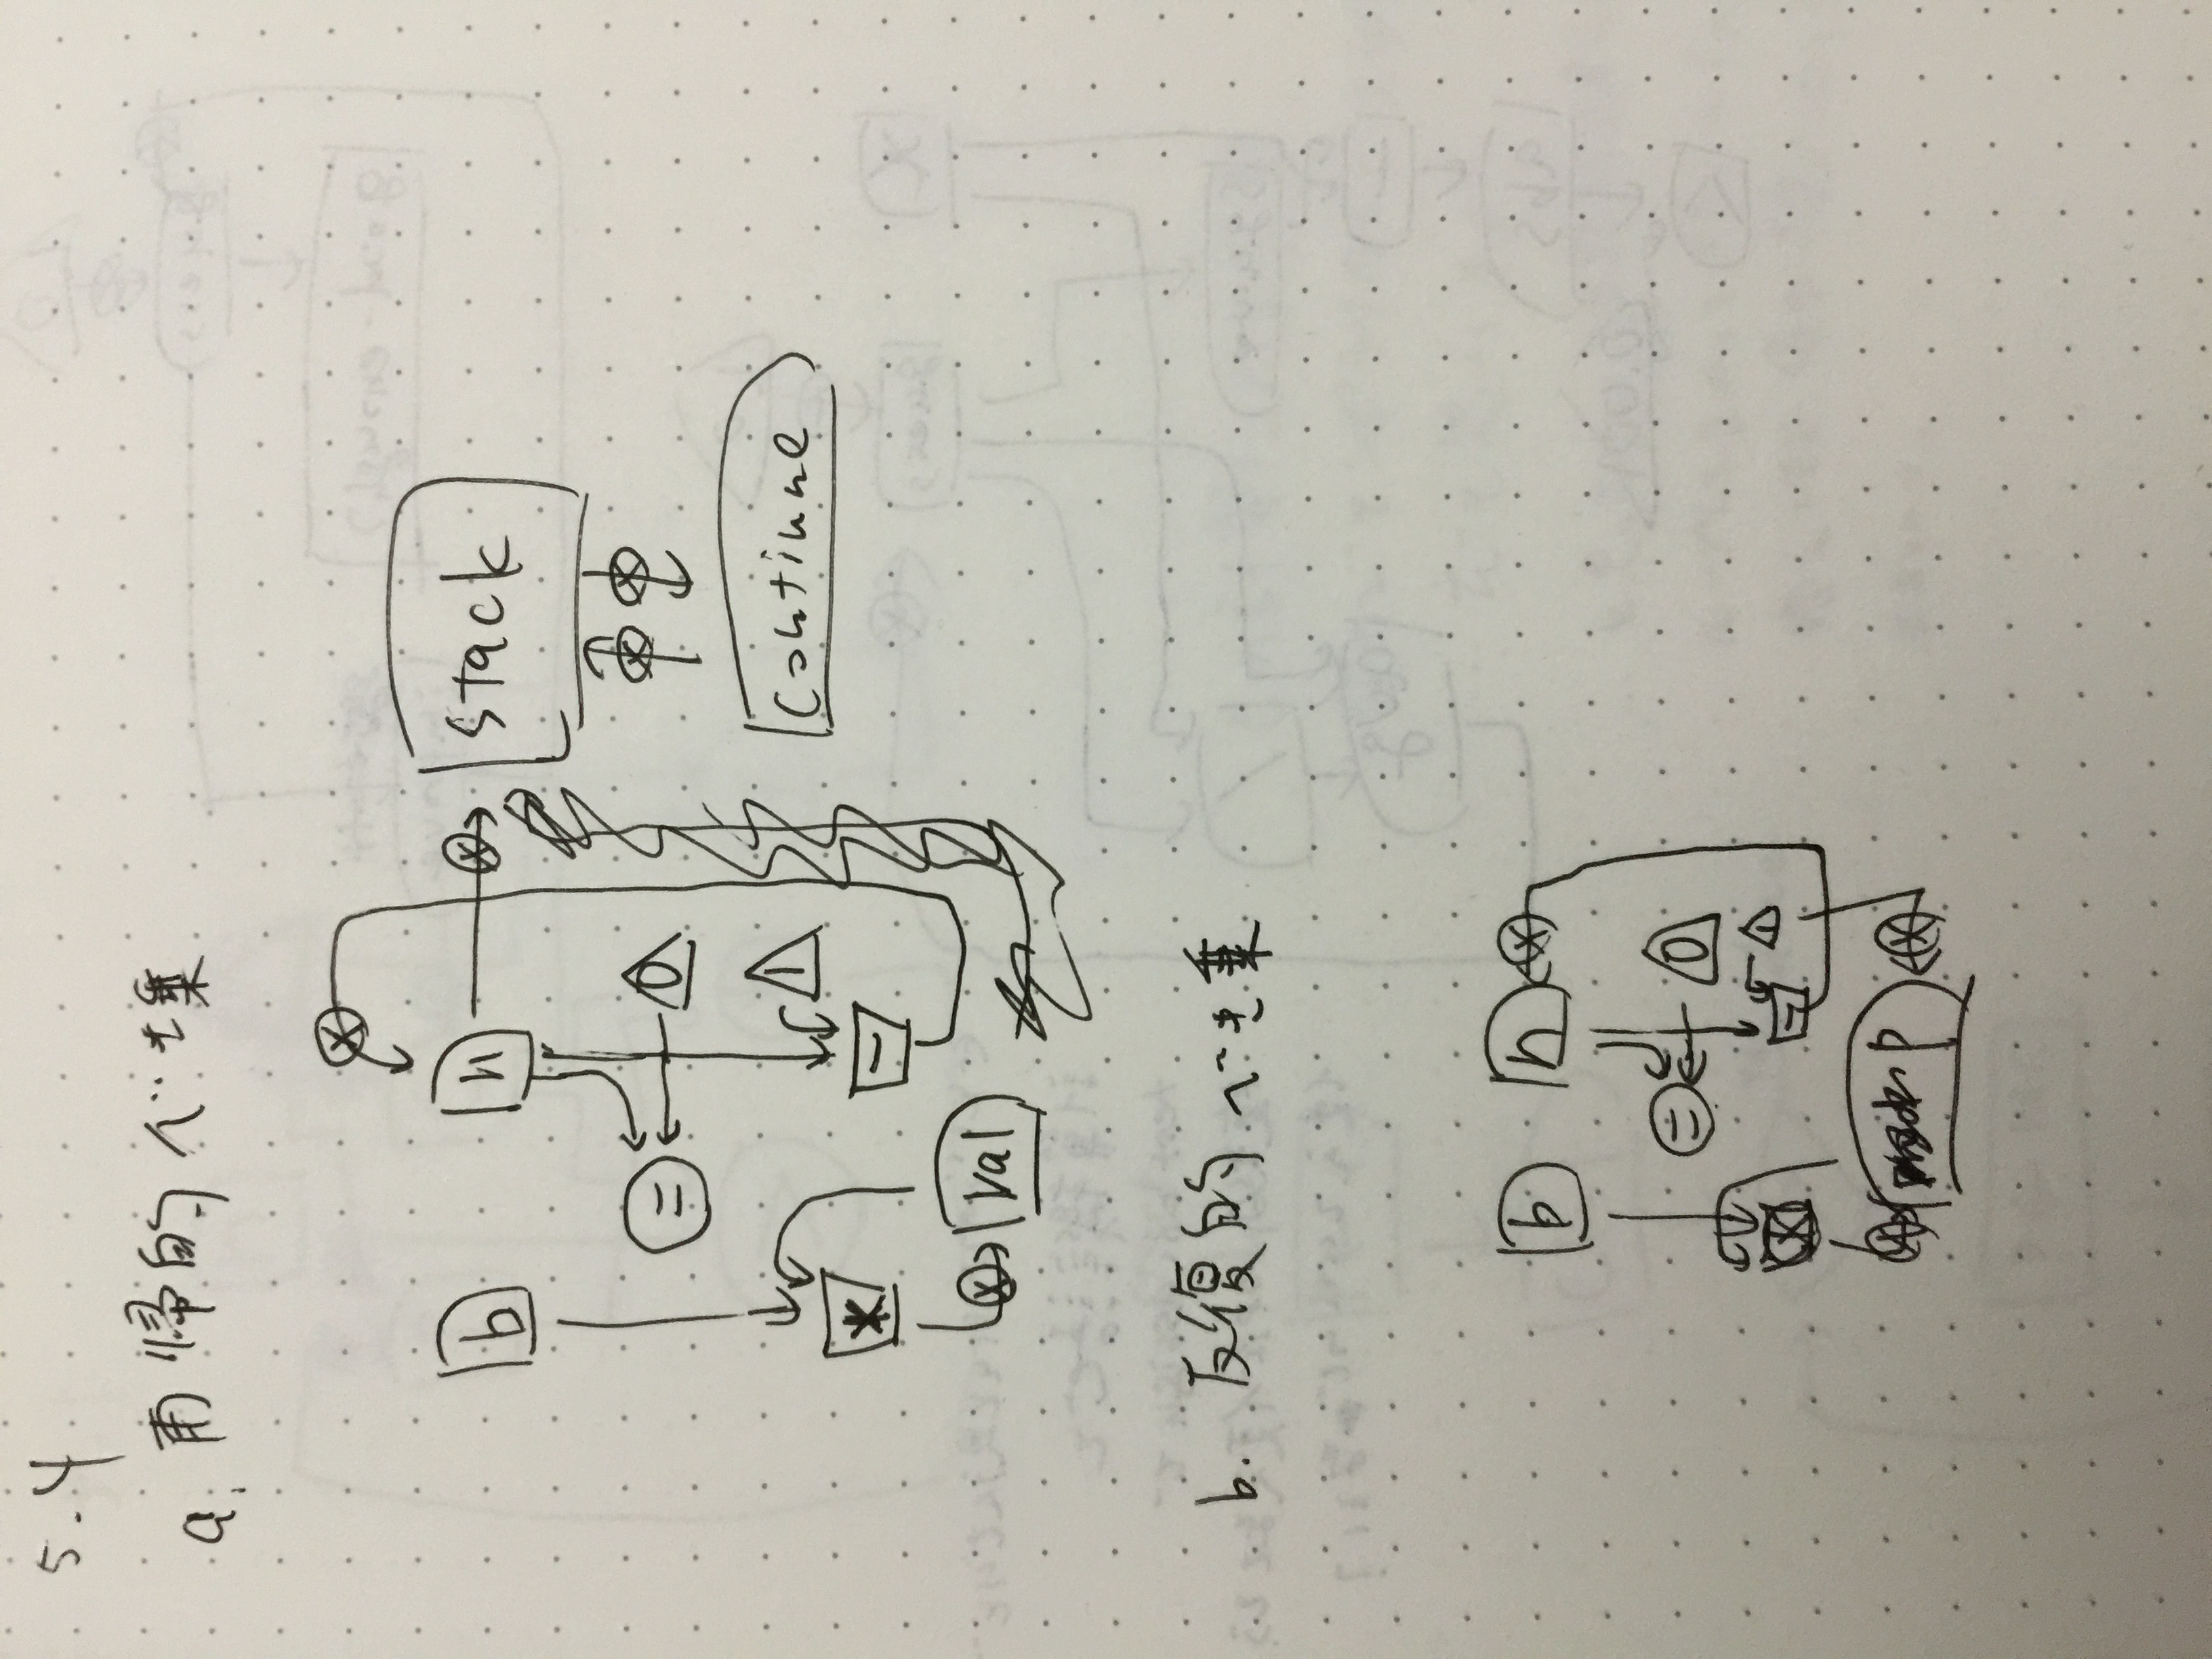 5.4
a. 再帰的べき乗
b n stack
= 0
1 continue
* -
val
b. 反復的べき乗
b n
= 0
* - 1
p